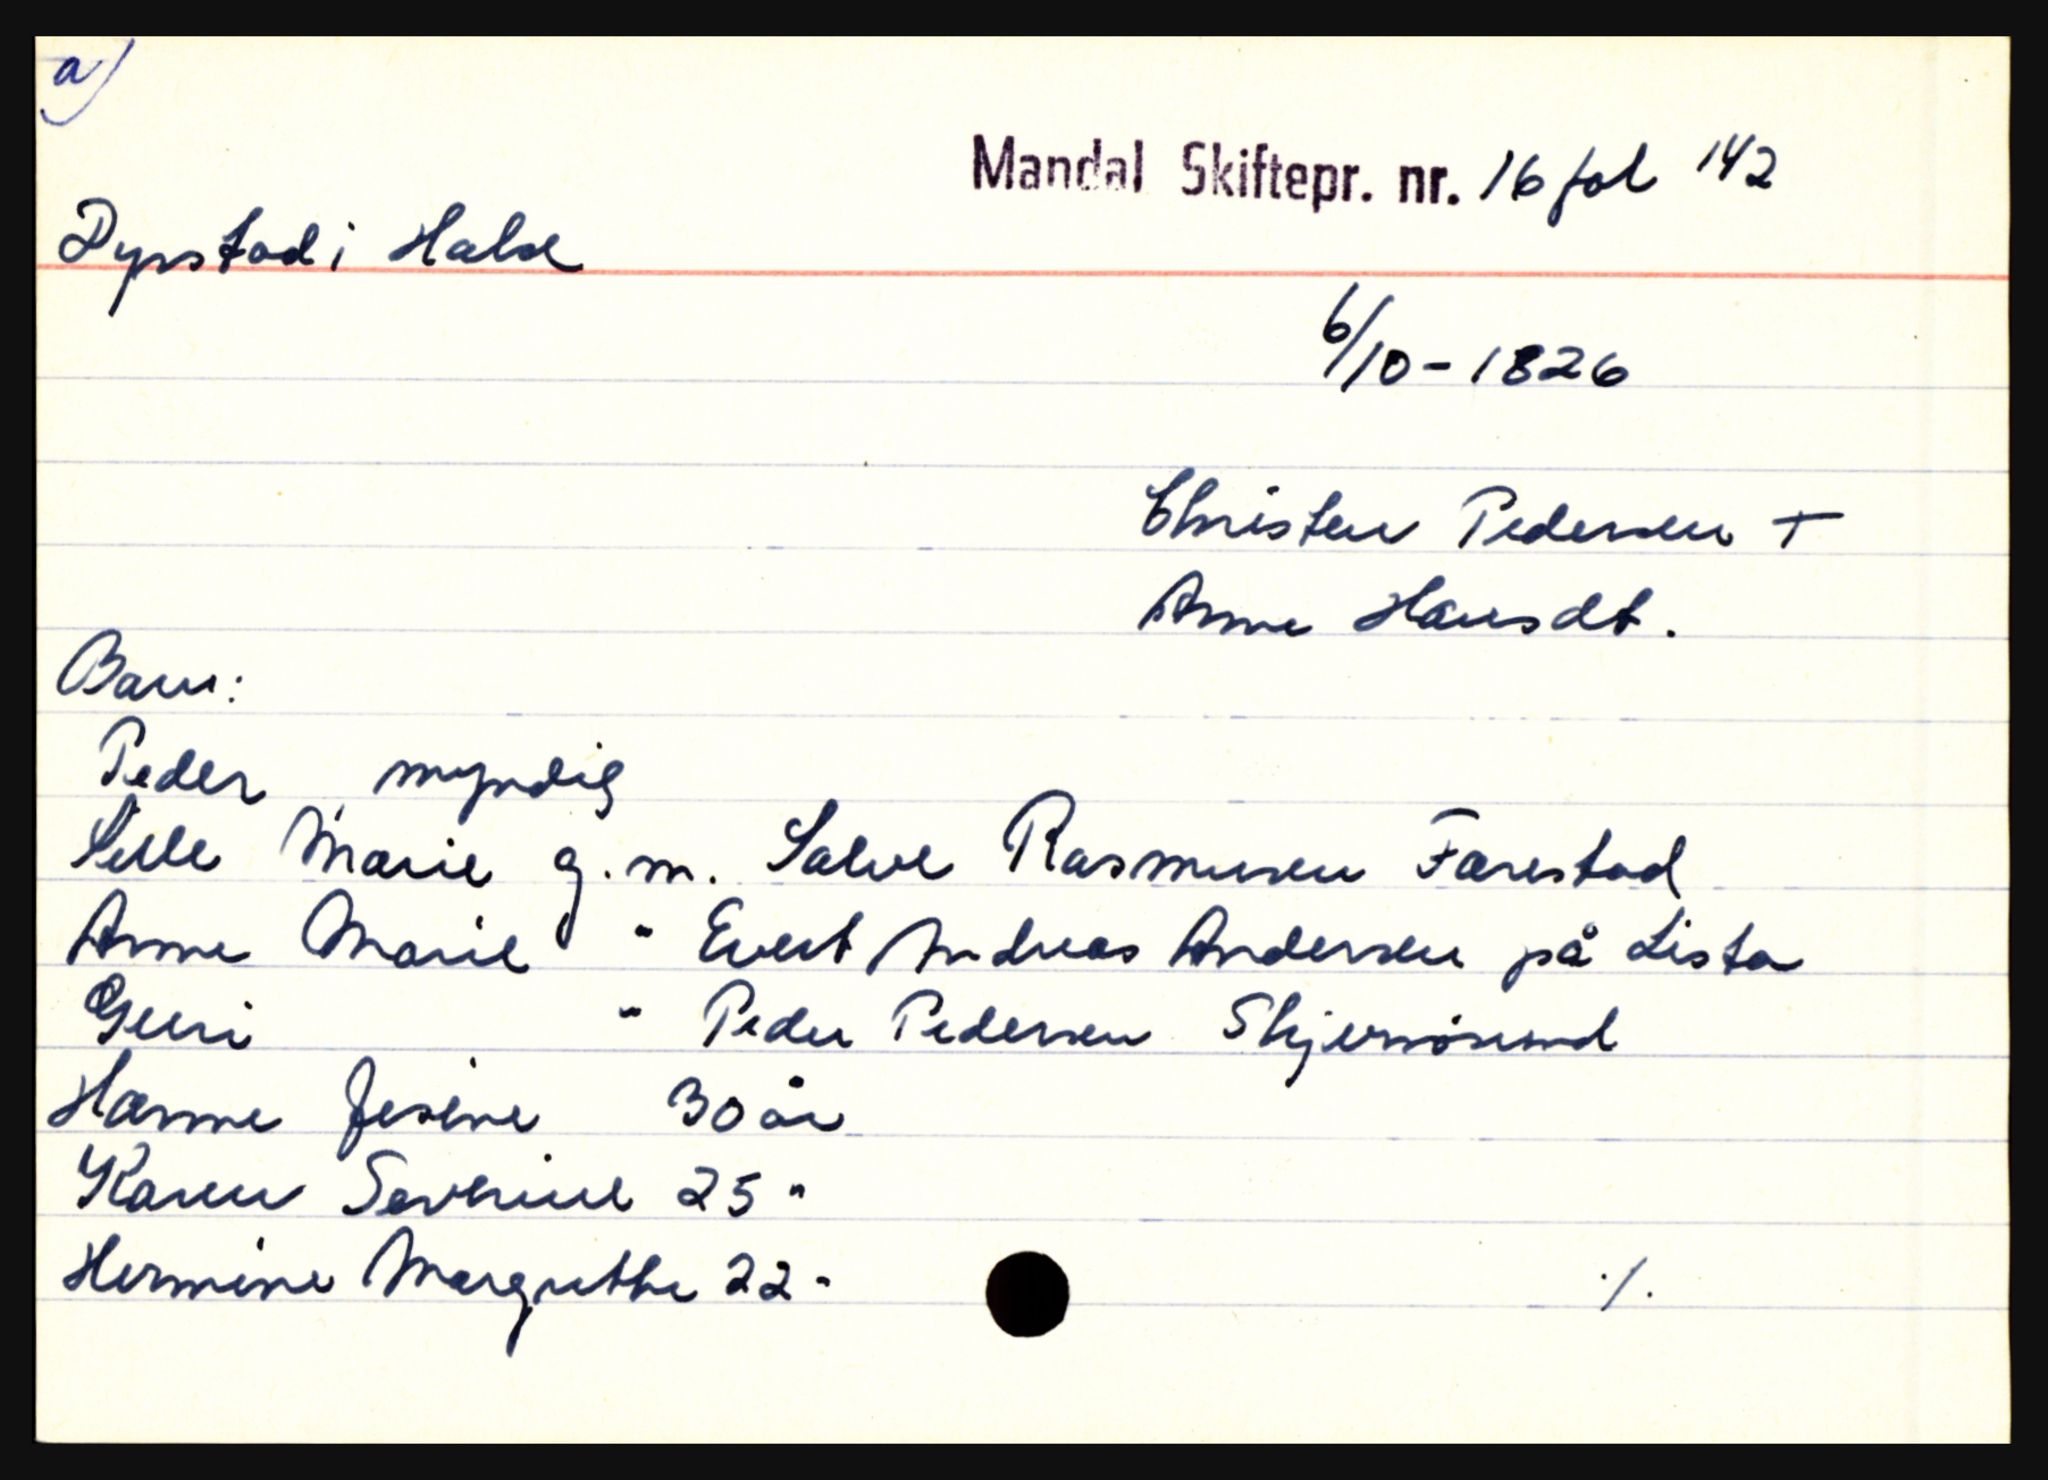 a)
Mandal Skiftepr. nr. 16 fol 142
Dyrstad i Halse
6/10-1826
Christen Pedersen +
Anne Hansdt.
Barn:
Peder myndig
Sille Marie g.m. Salve Rasmusen Færestad
Anne Marie " Evert Andreas Andersen på Lista
Guri " Peder Pedersen Skjernøsund
Hanne Jesine 30 år
Karen Severine 25 "
Hermine Margrethe 22 "
./.